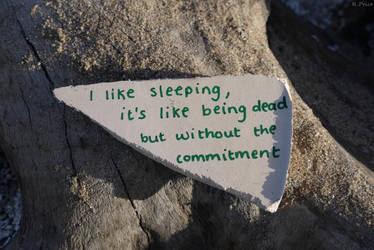 R. Price
I like sleeping,
it's like being dead
but without the
commitment